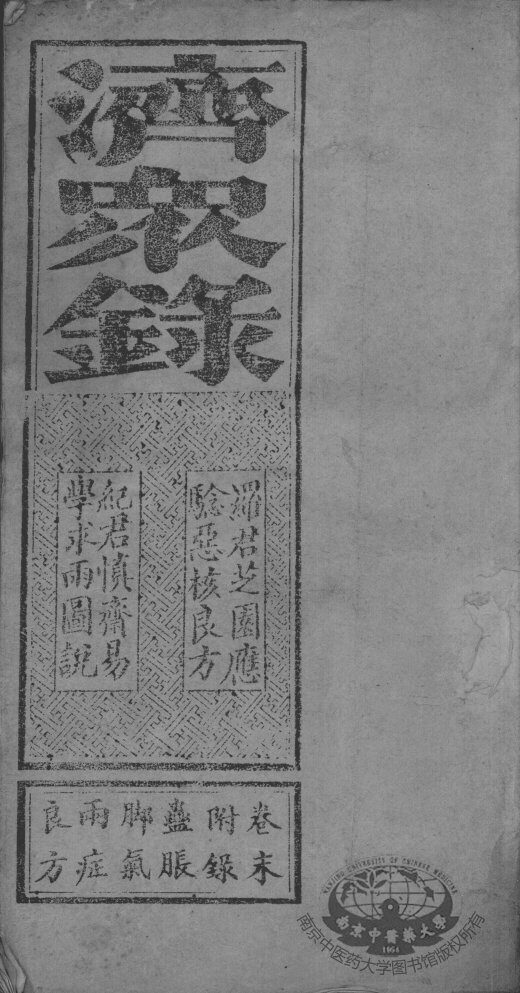 濟眾錄
羅君芝園應
驗惡核良方
紀君慎齋易
學求雨圖說
卷末
附錄
蠱脹
脚氣
兩症
良方
NANJING UNIVERSITY OF CHINESE MEDICINE
南京中醫藥大學
1954
南京中医药大学图书馆版权所有